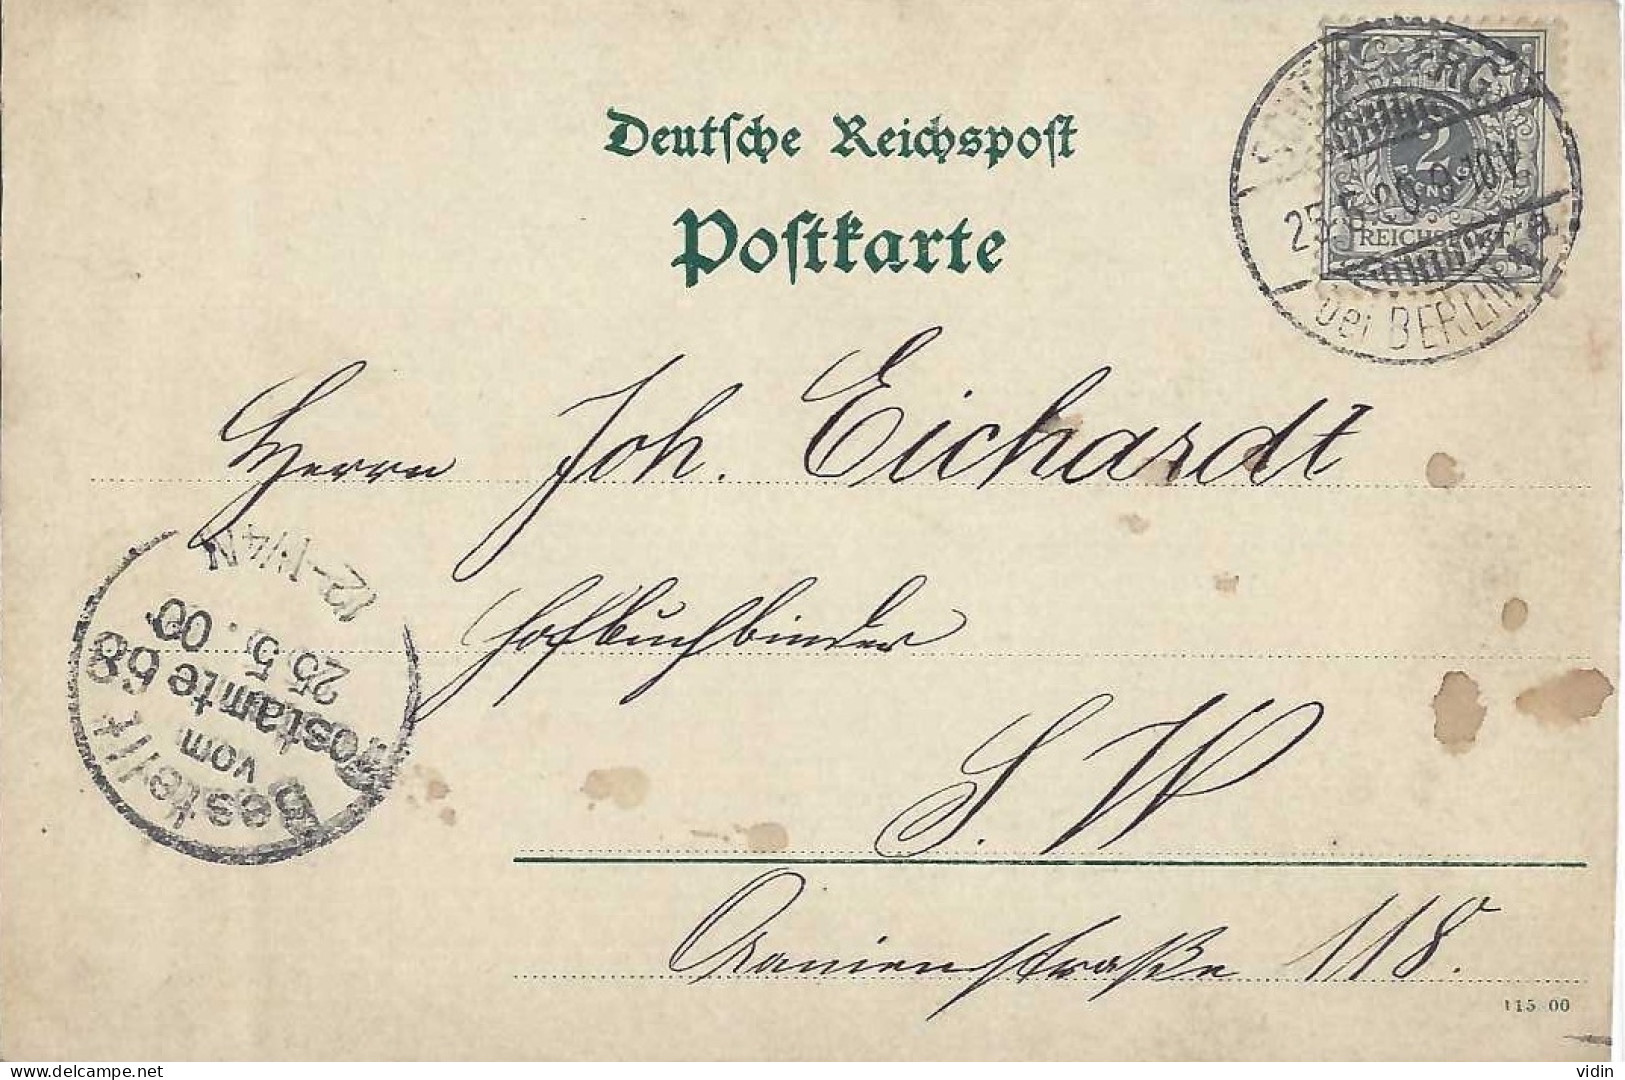 Deutsche Reichspost
Postkarte
2
PFENNIG
REICHSPOST
SCHÖNEBERG
25.5.00.9-10V.
bei BERLIN
Herrn Joh. Eichardt
Hofbuchbinder
S. W
Oranienstraße 118.
Bestellt
vom
Postamte 68
25.5.00
12-1¼N
115 00
www.delcampe.net
vidin